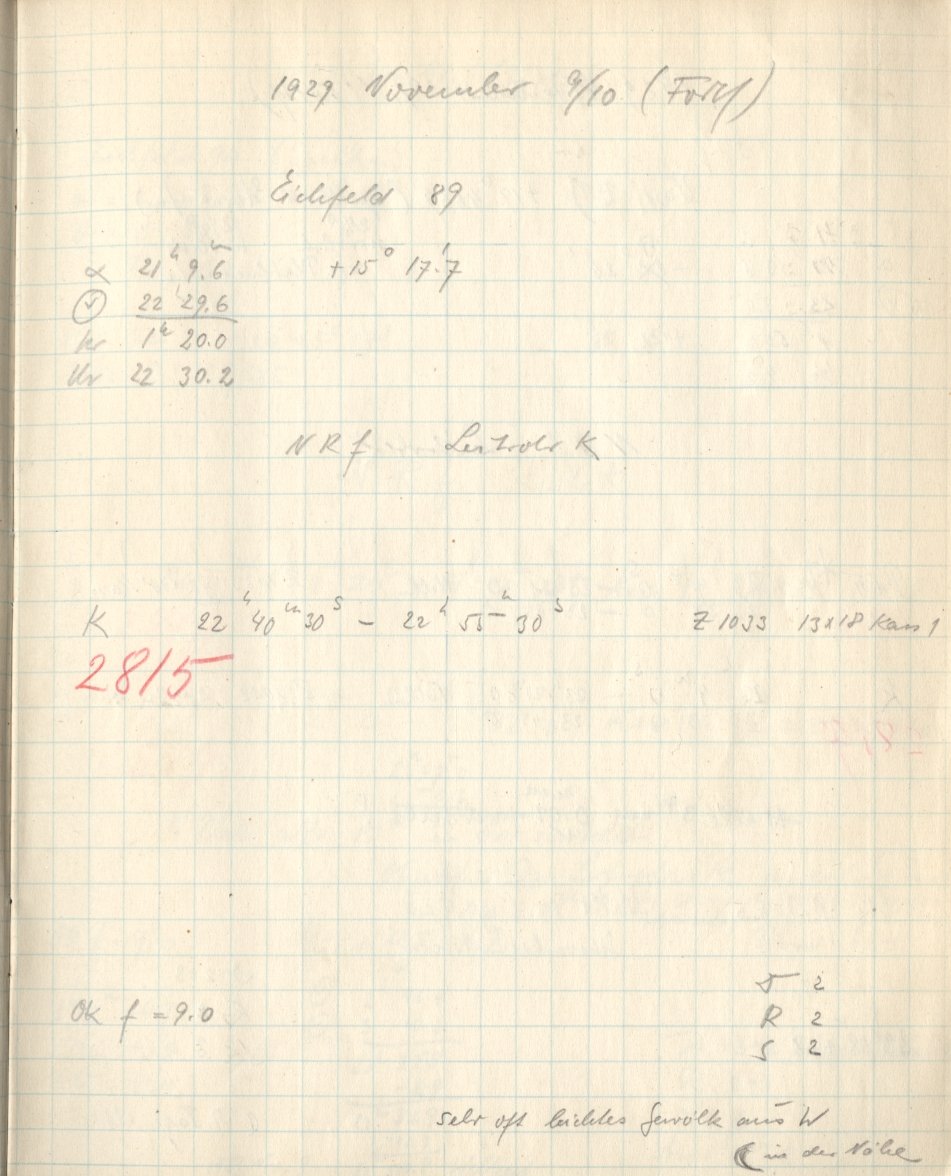 1929 November 9/10 (Forts)
Eichfeld 89
α 21ʰ 9.6ᵐ +15° 17.′7
22 29.6
1ʰ 20.0
Uhr 22 30.2
N R f Leitrohr K
K 22ʰ 40ᵐ 30ˢ – 22ʰ 55ᵐ 30ˢ Z 1033 13x18 Kass 1
2815
Ok f = 9.0
R 2
S 2
sehr oft leichtes Gewölk aus W
☾ in der Nähe